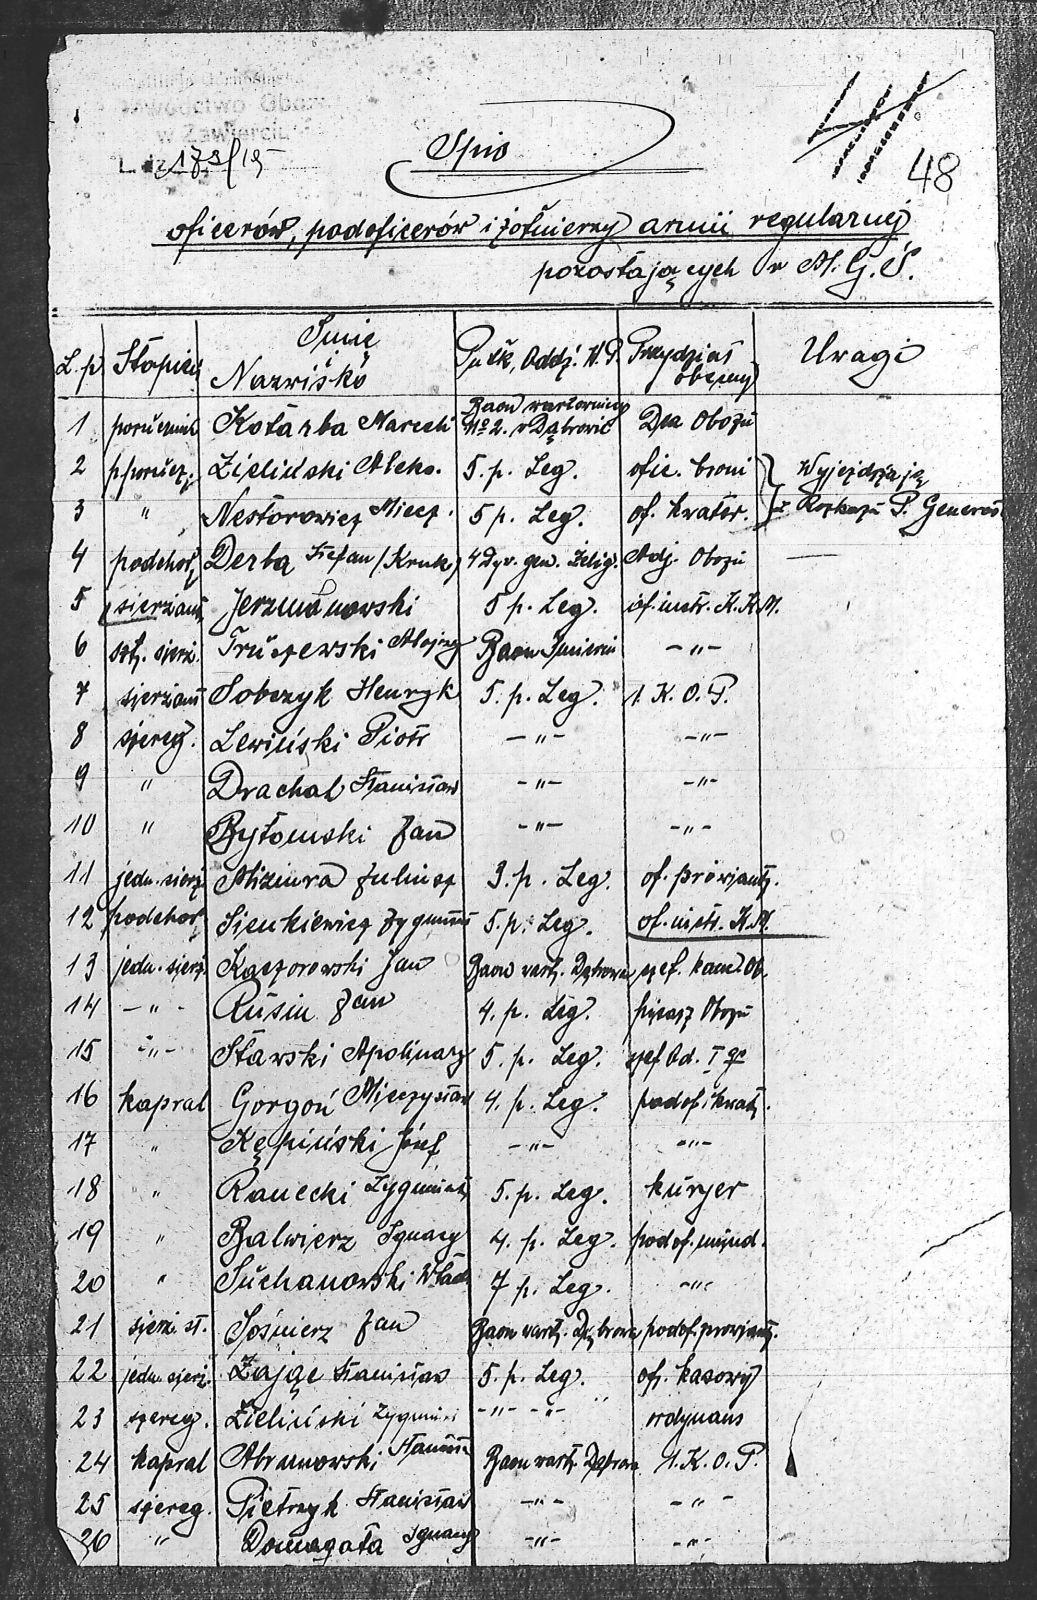 w Zawierciu
L. dz.
Spis
48
oficerów, podoficerów i żołnierzy armii regularnej
pozostających w M. G. S.
L.p Stopień Imię Nazwisko Pułk, Oddz. W.P. Przydział obecny Uwagi
1 porucznik Kotarba Marceli Baon wartowniczy № 2. w Dąbrowie Dca Obozu
2 p/porucz. Zieliński Aleks. 5. p. Leg. ofic. broni } Wyjeżdżają
3 " Nestorowicz Miecz. 5 p. Leg. of. kwater. } z Rozkazu P. Generała
4 podchor. Derba Stefan (Kruk) 4 Dyw. gen. Żelig. Adj. Obozu —
5 sierżant Jerzmanowski 5 p. Leg. of. instr. K.K.M.
6 szt. sierż. Truszewski Alojzy Baon Śmierci -"-
7 sierżant Sobczyk Henryk 5. p. Leg. 1. K. O. P.
8 szereg. Lewiński Piotr -"- -"-
9 " Drachal Stanisław -"- -"-
10 " Bytomski Jan -"- -"-
11 jedn. sierż. Miziura Juliusz 3. p. Leg. of. prowjant.
12 podchor. Sienkiewicz Zygmunt 5. p. Leg. of. instr. K.M.
13 jedn. sierż. Kasporowski Jan Baon wart. Dąbrowa szef. kanc. Ob.
14 -"- Rusin Jan 4. p. Leg. pisarz Obozu
15 -"- Starski Apolinary 5. p. Leg. szef Od. I
16 kapral Gorgoń Mieczysław 4. p. Leg. podof. kwat.
17 " Kępiński Józef -"- -"-
18 " Ranecki Zygmunt 5. p. Leg. kurjer
19 " Balwierz Ignacy 4. p. Leg. podof. mund.
20 " Suchanowski Wład. 7 p. Leg. -"-
21 sierż. st. Sośnierz Jan Baon wart. Dąbrowa podof. prowjant.
22 jedn. sierż. Zając Stanisław 5. p. Leg. of. kasowy
23 szereg. Zieliński Zygmunt -"- -"- " ordynans
24 kapral Abramowski Stanisław Baon wart. Dąbrowa 1. K. O. P.
25 szereg. Pietrzyk Stanisław -"- -"-
26 " Domagała Ignacy -"- -"-